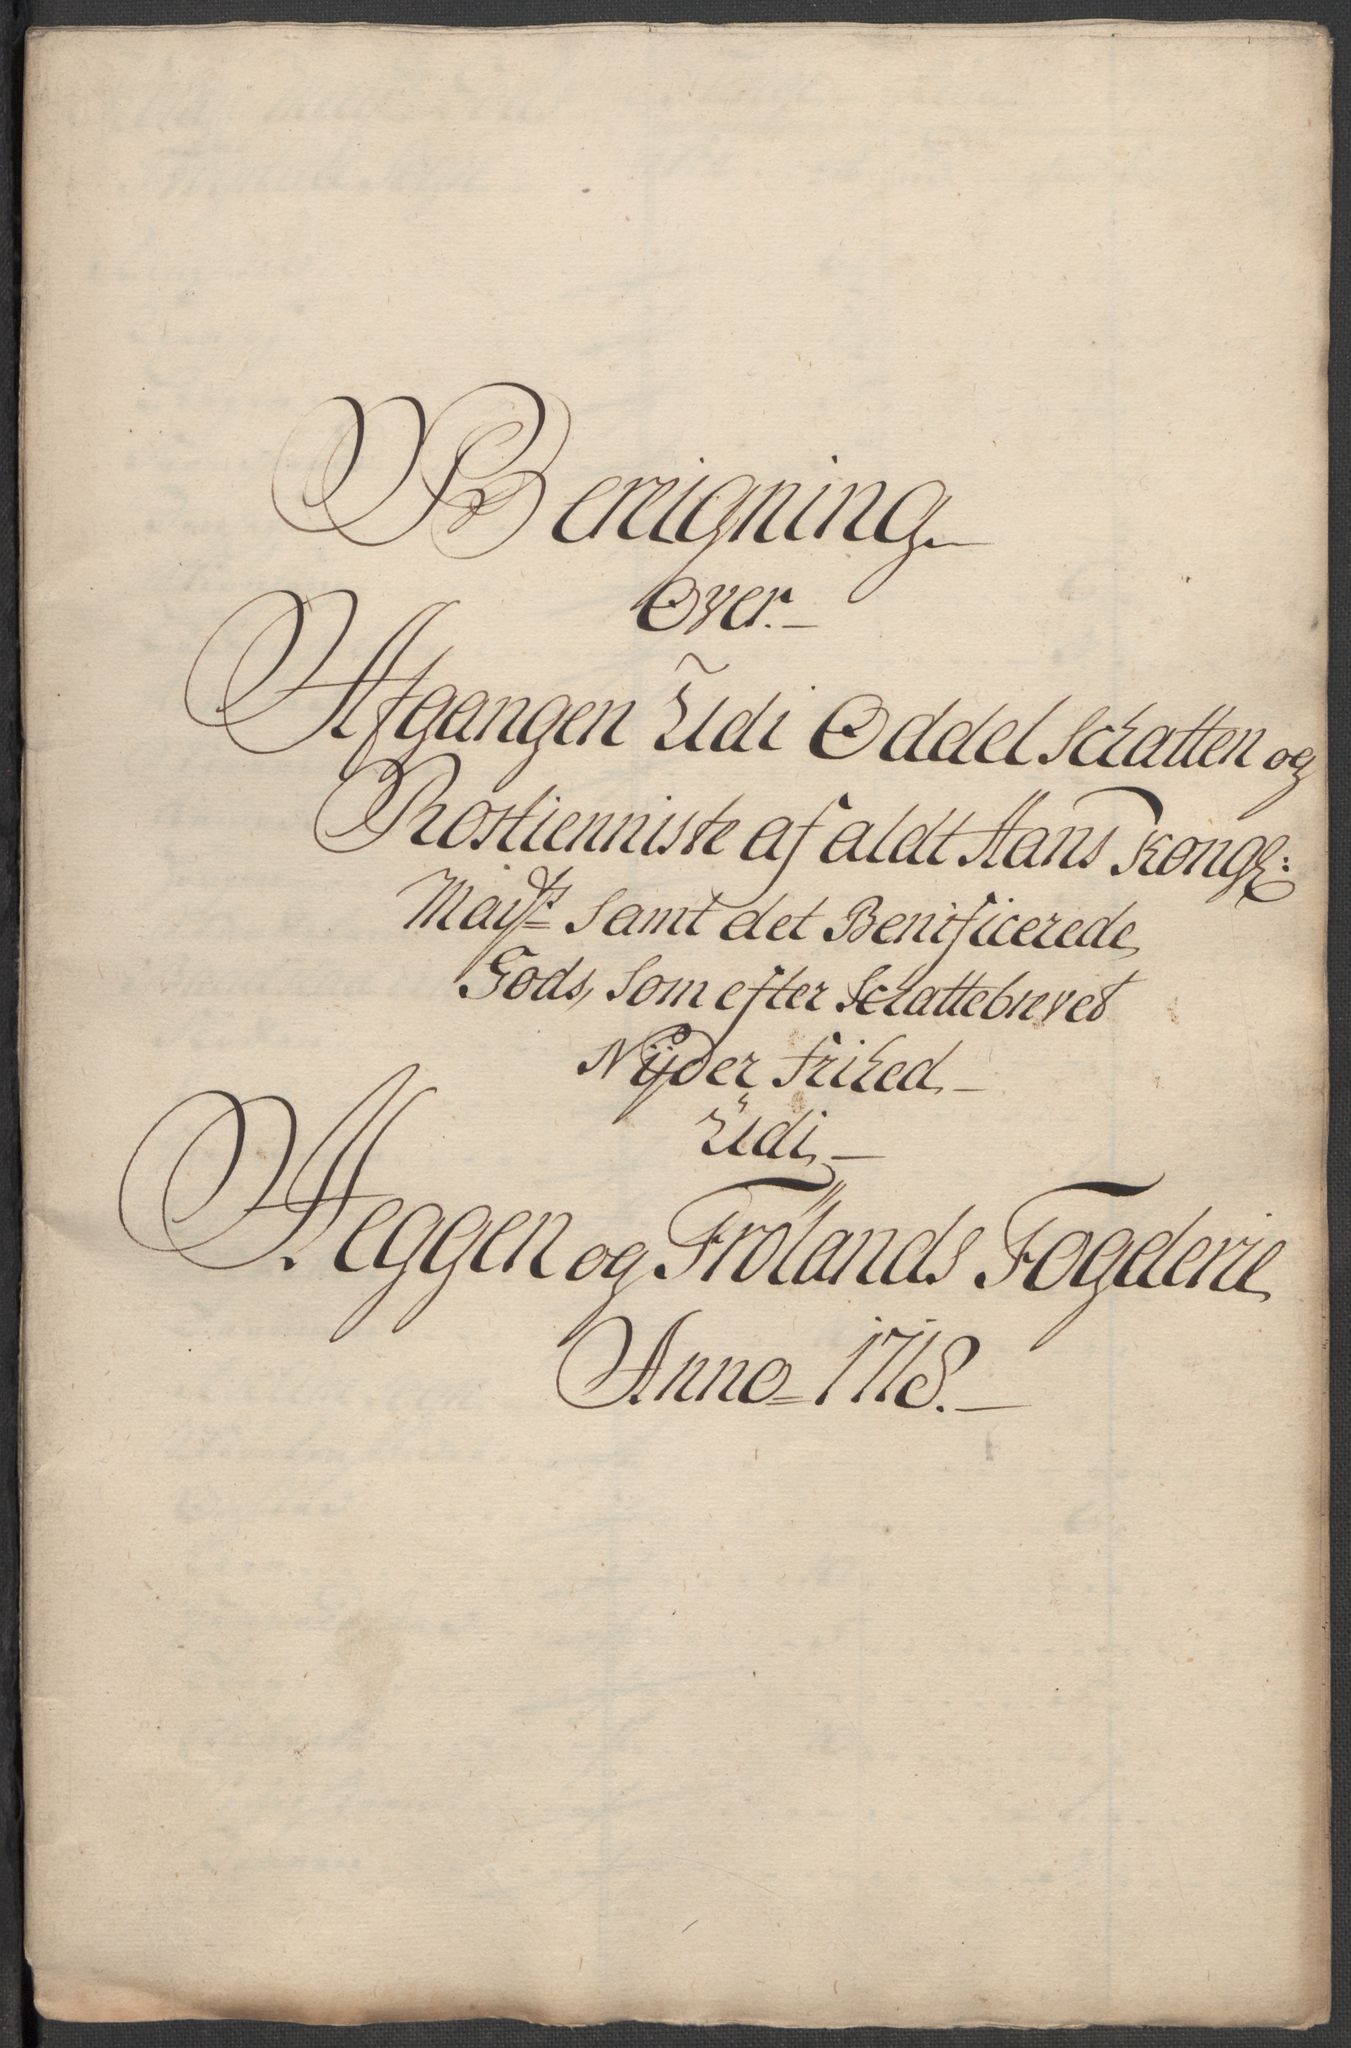 Bereigning
Over.
Afgangen Udi Oddel Schatten og
Rostienniste af aldt Hans Kongl:
Mayts Samt det Benificerede
Gods, Som efter Schattebrevet
Nyder frihed
Udi
Heggen og Frölands Fogderie
Anno 1718.